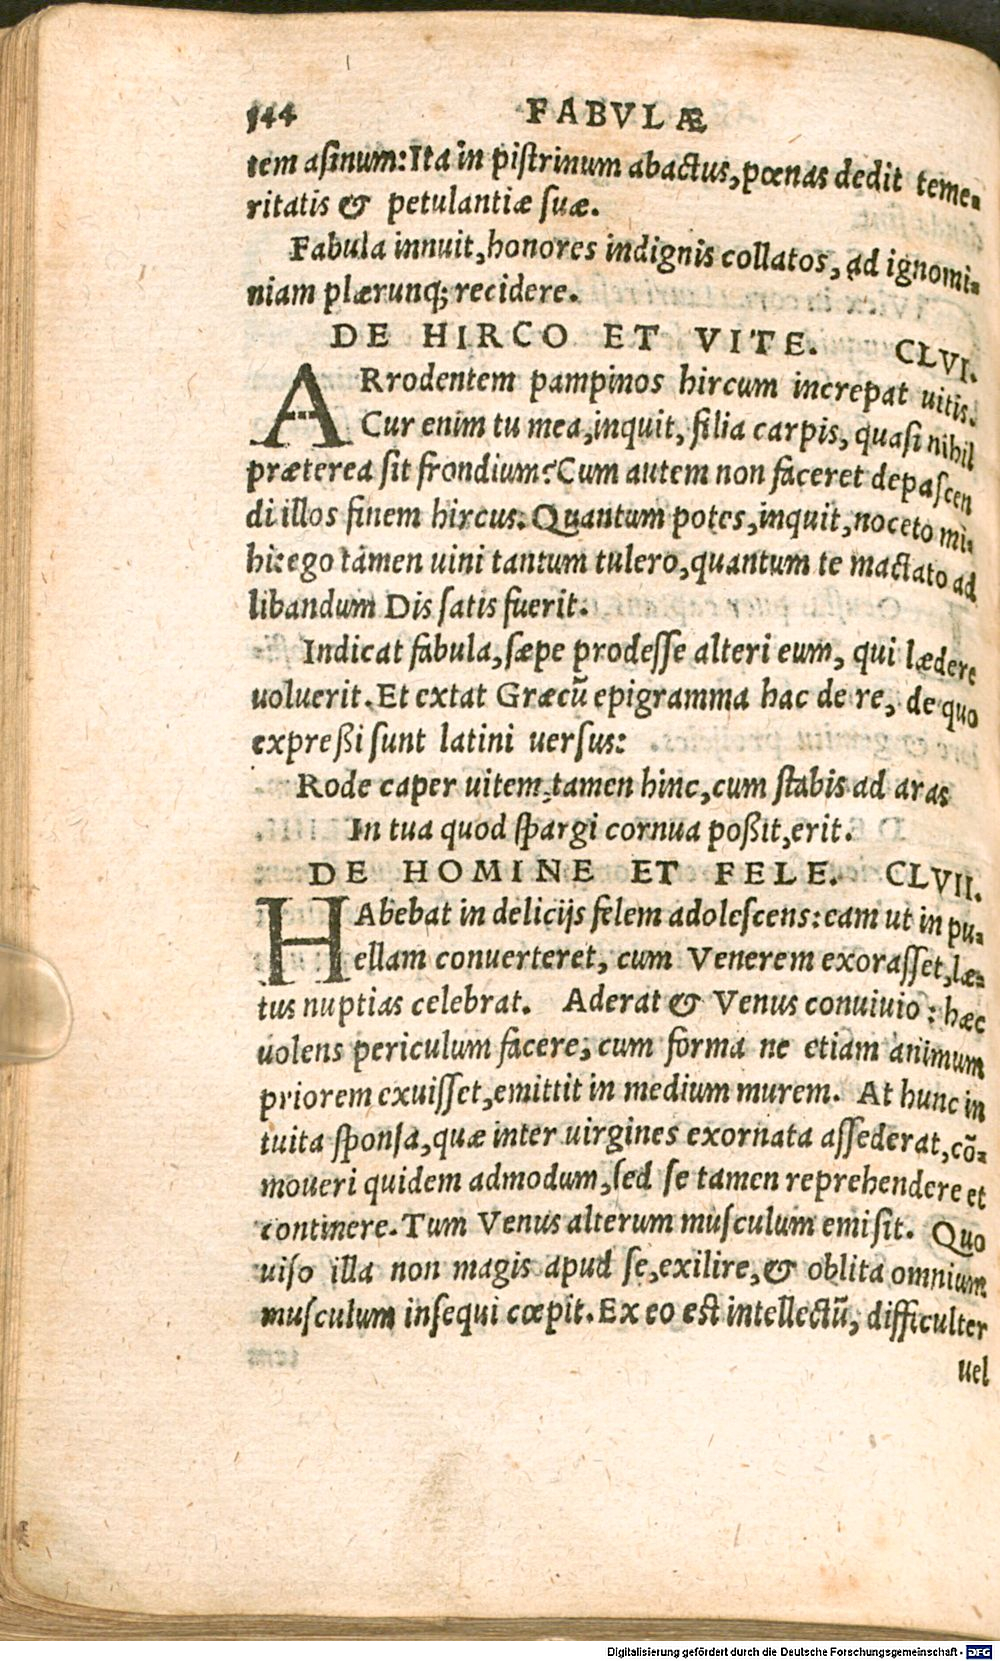 144 FABVLÆ
tem asinum: Ita in pistrinum abactus, pœnas dedit teme-
ritatis & petulantiæ suæ.
Fabula innuit, honores indignis collatos, ad ignomi-
niam plærunq; recidere.
DE HIRCO ET VITE. CLVI.
ARrodentem pampinos hircum increpat uitis.
Cur enim tu mea, inquit, filia carpis, quasi nihil
præterea sit frondium? Cum autem non faceret depascen
di illos finem hircus. Quantum potes, inquit, noceto mi-
hi: ego tamen uini tantum tulero, quantum te mactato ad
libandum Dis satis fuerit.
Indicat fabula, sæpe prodesse alteri eum, qui lædere
uoluerit. Et extat Græcū epigramma hac de re, de quo
expreßi sunt latini uersus:
Rode caper uitem, tamen hinc, cum stabis ad aras
In tua quod spargi cornua poßit, erit.
DE HOMINE ET FELE. CLVII.
HAbebat in delicijs felem adolescens: eam ut in pu-
ellam conuerteret, cum Venerem exorasset, læ-
tus nuptias celebrat. Aderat & Venus conuiuio: hæc
uolens periculum facere, cum forma ne etiam animum
priorem exuisset, emittit in medium murem. At hunc in
tuita sponsa, quæ inter uirgines exornata assederat, cō-
moueri quidem admodum, sed se tamen reprehendere et
continere. Tum Venus alterum musculum emisit. Quo
uiso illa non magis apud se, exilire, & oblita omnium
musculum insequi cœpit. Ex eo est intellectū, difficulter
uel
Digitalisierung gefördert durch die Deutsche Forschungsgemeinschaft - DFG